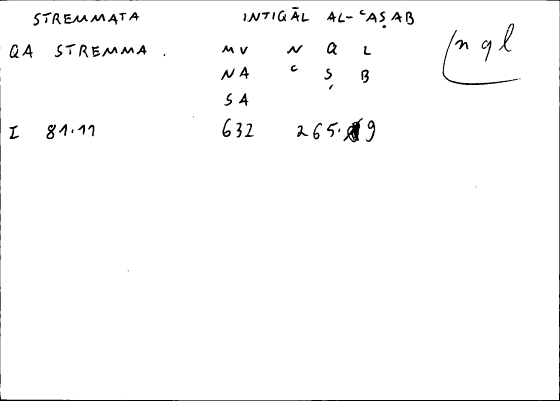 STREMMATA INTIQĀL AL-ʿAṢAB
QA STREMMA . MV N Q L
NA ʿ Ṣ B
SA
I 81.11 632 265. 9
n q l